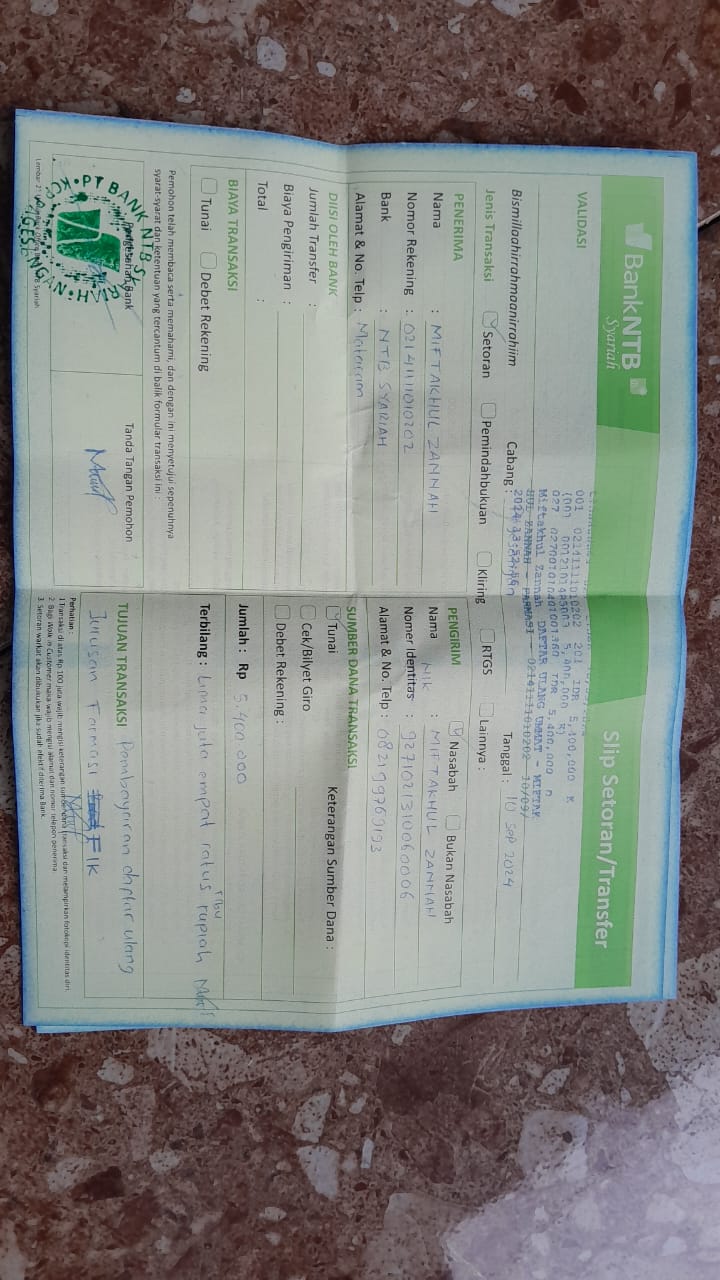 BankNTB
Syariah
Slip Setoran/Transfer
VALIDASI
001 02141111010202 201 IDR 5,400,000 K
5,400,000
IDR 5,400,000 D
Miftakhul Zannah DAFTAR ULANG UMMAT - MIFTAK
HUL ZANNAH - FARMASI - 02141111010202 10/09/
2024 13:52:56
Bismillaahirrahmaanirrohiim
Cabang :
Tanggal : 10 Sep 2024
Jenis Transaksi
Setoran
Pemindahbukuan
Kliring
RTGS
Lainnya :
PENERIMA
Nama : MIFTAKHUL ZANNAH
Nomor Rekening : 02141111010202
Bank : NTB SYARIAH
Alamat & No. Telp : Mataram
PENGIRIM
Nasabah
Bukan Nasabah
Nama : MIFTAKHUL ZANNAH
NIK
Nomer Identitas : 9271021310060006
Alamat & No. Telp : 082199769193
DIISI OLEH BANK
Jumlah Transfer :
Biaya Pengiriman :
Total :
SUMBER DANA TRANSAKSI
Tunai
Keterangan Sumber Dana :
Cek/Bilyet Giro
Debet Rekening :
BIAYA TRANSAKSI
Tunai
Debet Rekening
Jumlah : Rp 5.400.000
Terbilang : Lima juta empat ratus ribu rupiah
Pemohon telah membaca serta memahami, dan dengan ini menyetujui sepenuhnya
syarat-syarat dan ketentuan yang tercantum di balik formular transaksi ini :
Pengesahan Bank
Tanda Tangan Pemohon
PT BANK NTB SYARIAH
TUJUAN TRANSAKSI Pembayaran daftar ulang
Jurusan Farmasi FIK
Perhatian :
1 Transaksi di atas Rp.100 juta wajib mengisi keterangan sumber dana transaksi dan melampirkan fotokopi identitas diri.
2. Bagi Walk in Customer maka wajib mengisi alamat dan nomor telepon penerima
3. Setoran warkat akan dibukukan jika sudah efektif diterima Bank.